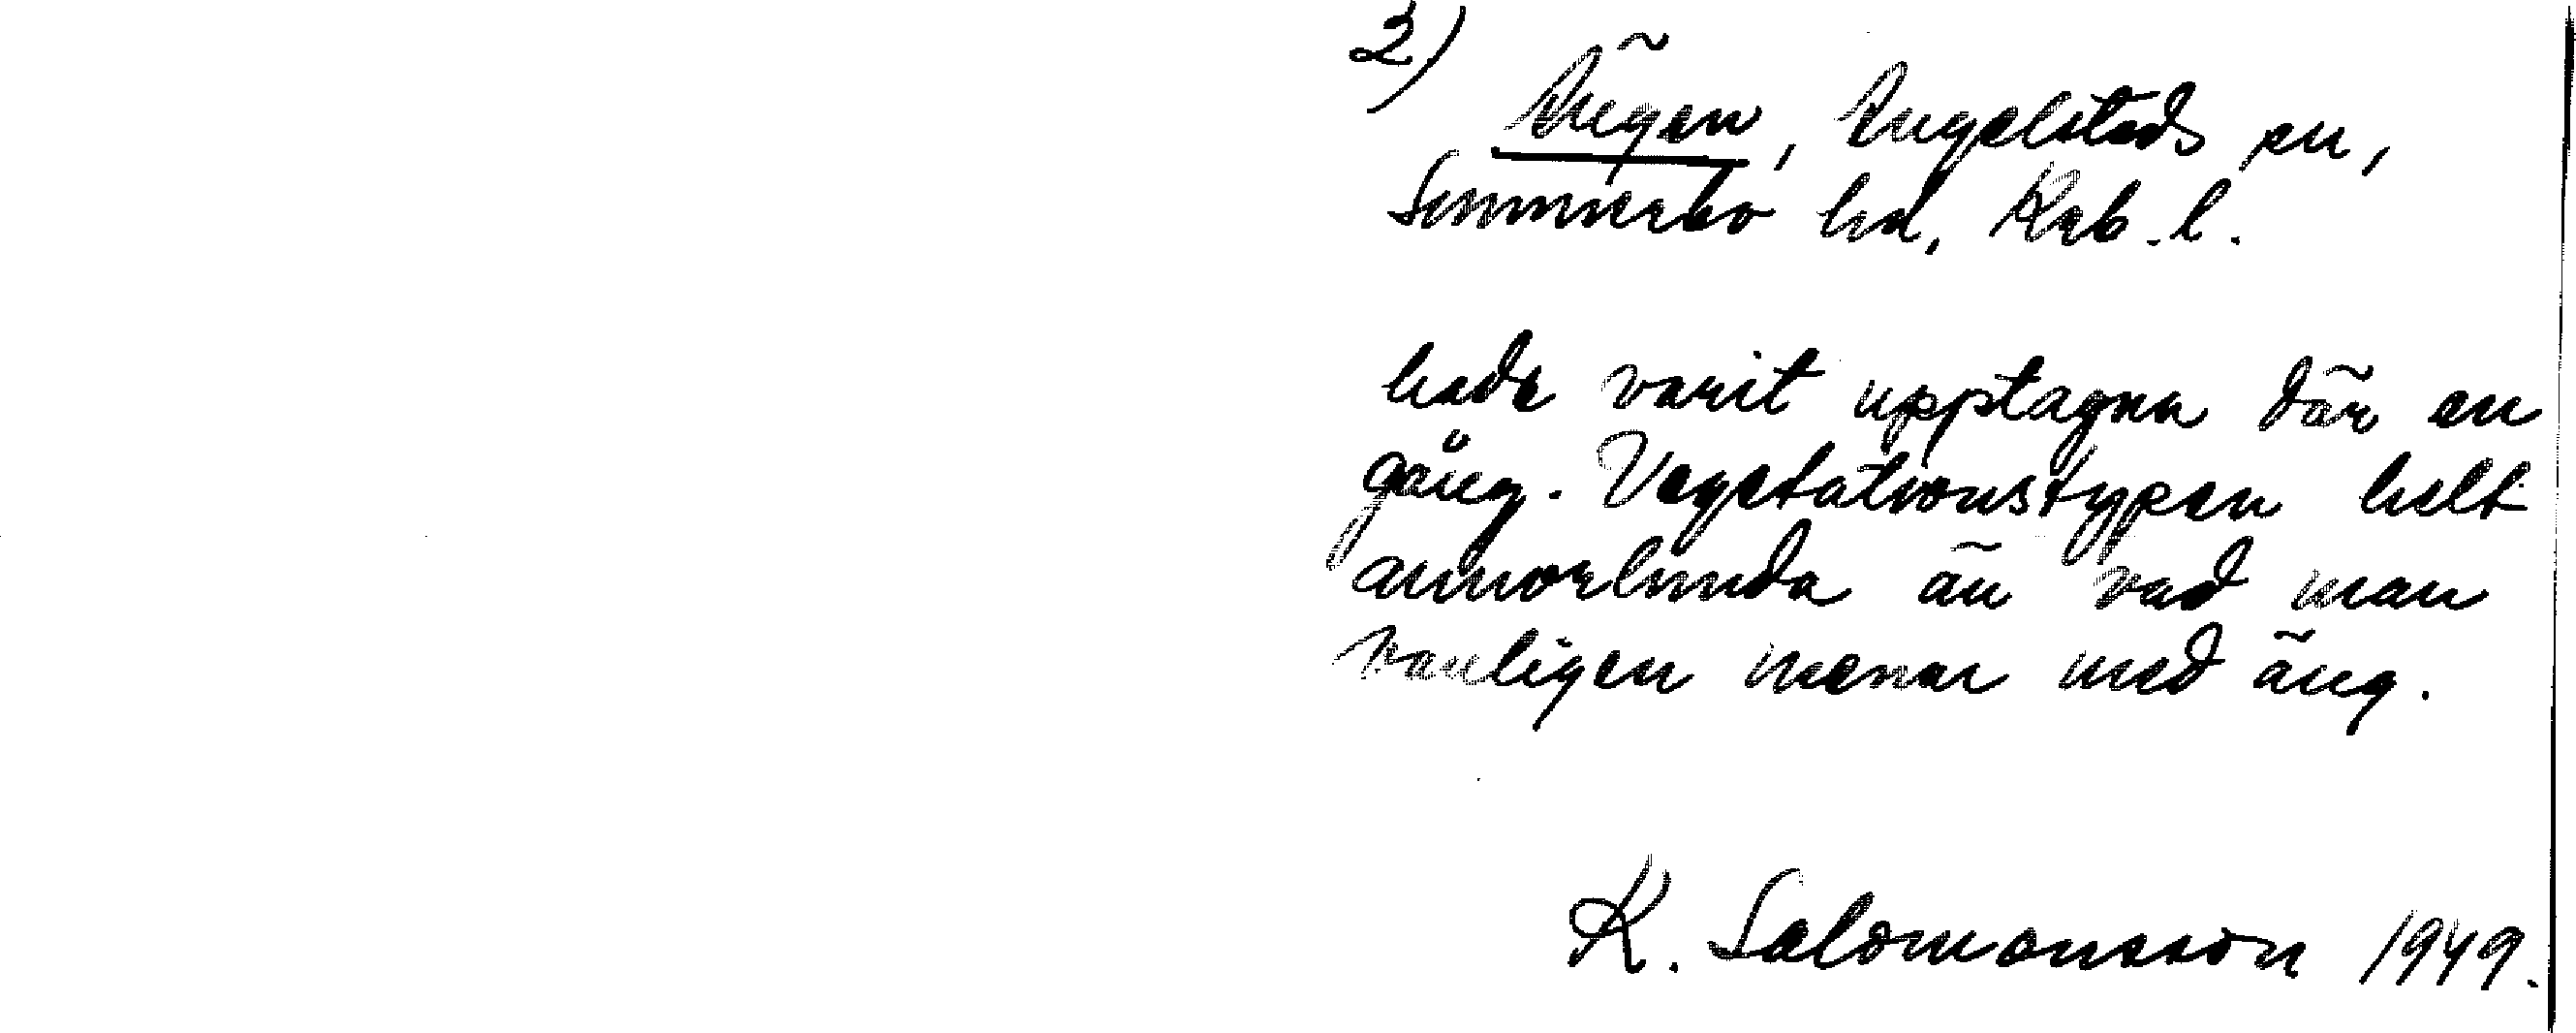 2)
Ängen, Angelstads sn,
Sunnerbo hd, Krb. l.
hade varit upptagna där en
gång. Vegetationstypen helt
annorlunda än vad man
vanligen menar med äng.
K. Salomonsson 1949.